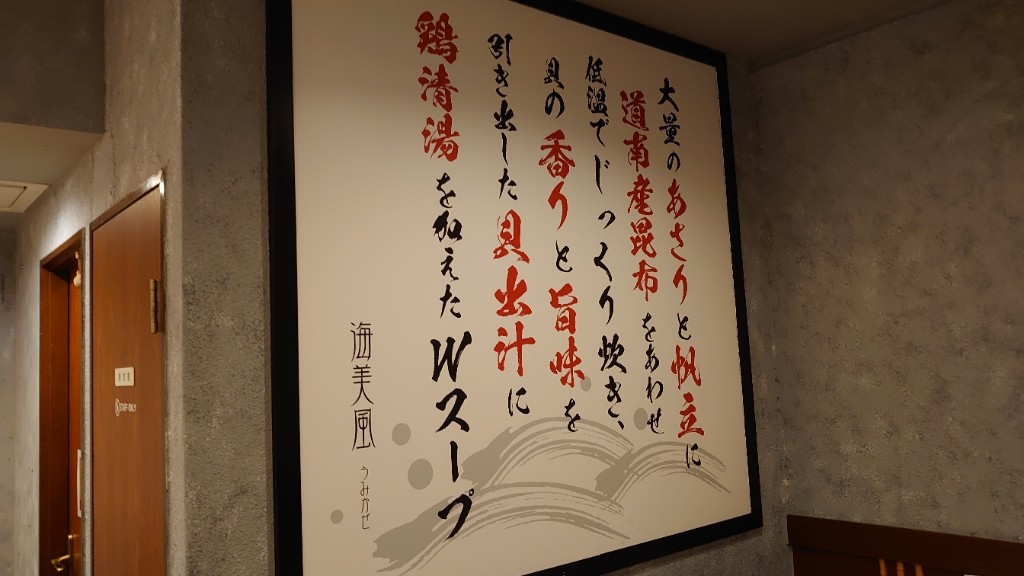 大量のあさりと帆立に
道南産昆布をあわせ
低温でじっくり炊き、
貝の香りと旨味を
引き出した貝出汁に
鶏清湯を加えたWスープ
海美風
うみかぜ
STAFF ONLY